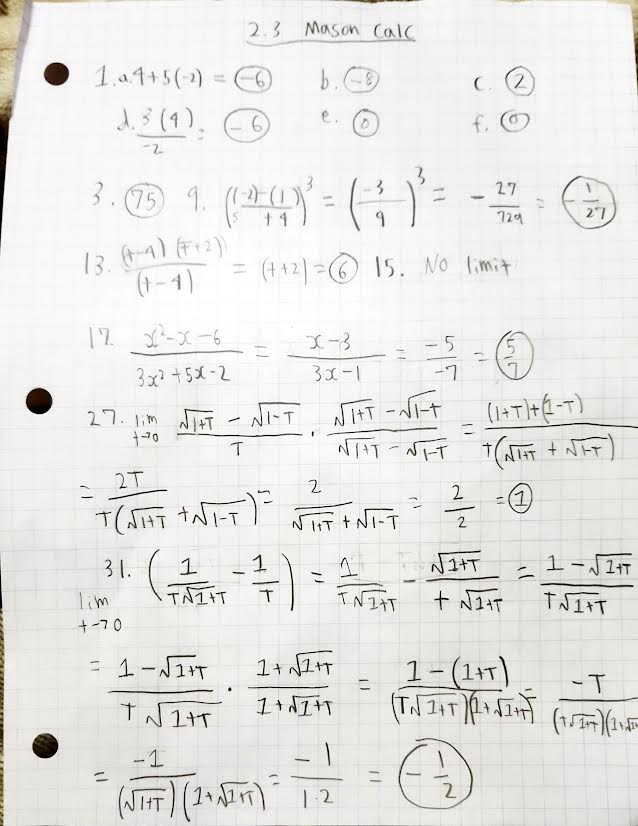 2.3 Mason Calc
1. a. 4+5(-2) = -6 b. -8 c. 2
d. 3(4)/-2 = -6 e. 0 f. 0
3. 75 9. ((-2)-(1)/5+4)^3 = (-3/9)^3 = -27/729 = -1/27
13. (t-4)(t+2)/(t-4) = (t+2) = 6 15. No limit
17. x²-x-6/3x²+5x-2 = x-3/3x-1 = -5/-7 = 5/7
27. lim t→0 √1+T - √1-T/T · √1+T - √1-t/√1+T - √1-T = (1+T)+(1-T)/T(√1+T + √1-T)
= 2T/T(√1+T + √1-T) = 2/√1+T + √1-T = 2/2 = 1
31. lim t→0 (1/T√1+T - 1/T) = 1/T√1+T - √1+T/t√1+T = 1-√1+T/T√1+T
= 1-√1+T/T√1+T · 1+√1+T/1+√1+T = 1-(1+T)/(T√1+T)(1+√1+T) = -T/(t√1+T)(1+√1+
= -1/(√1+T)(1+√1+T) = -1/1·2 = -1/2